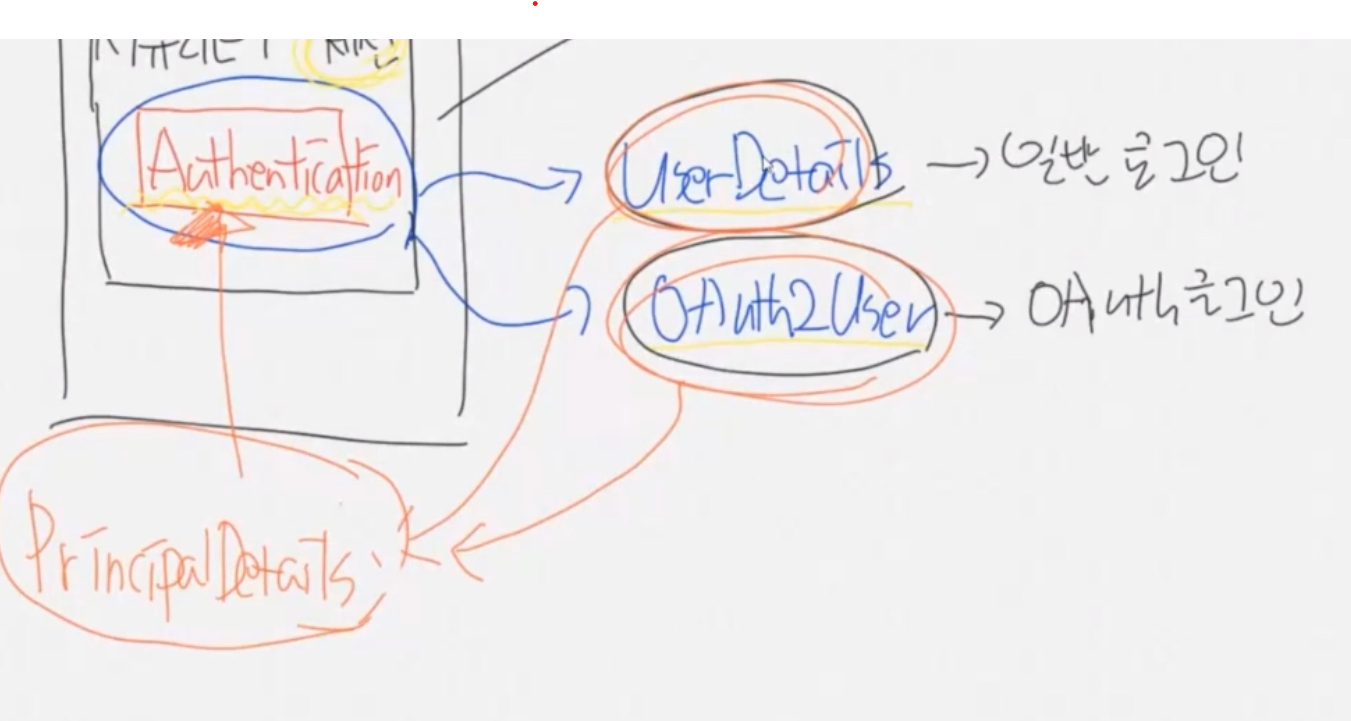 Authentication
UserDetails → 일반 로그인
OAuth2User → OAuth 로그인
PrincipalDetails